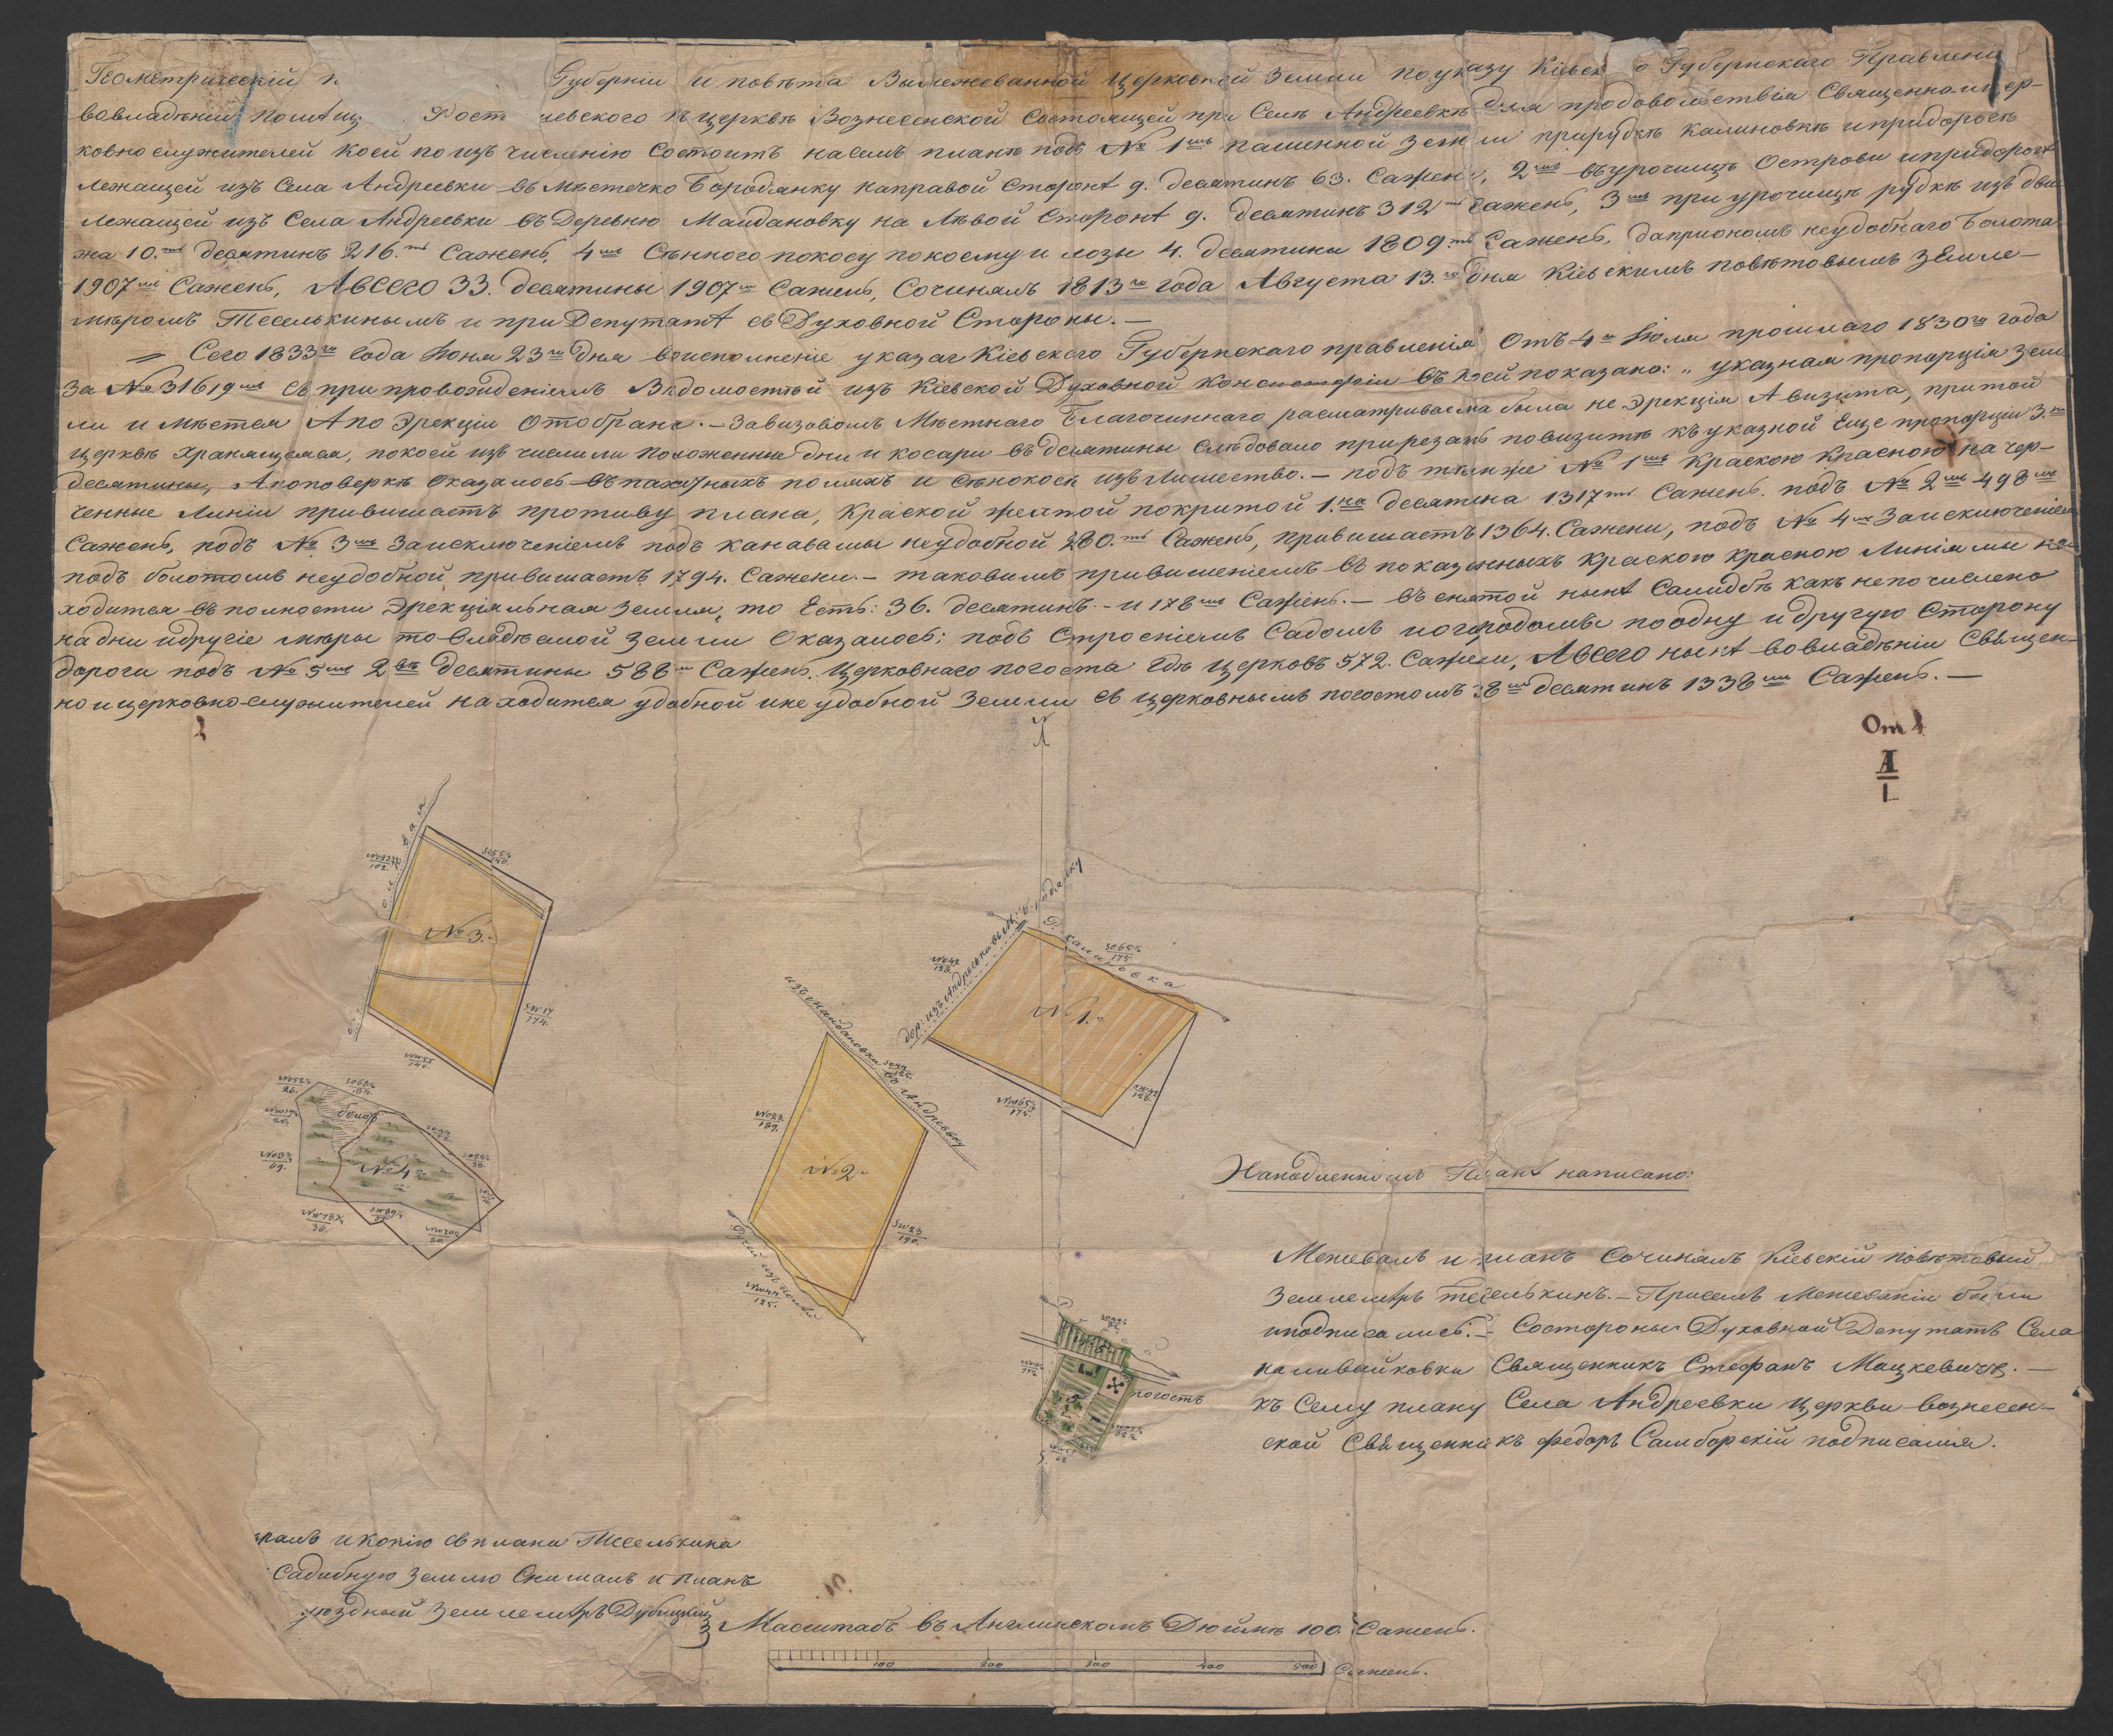 Геометрическій Губерніи и повѣта Вымежеванной Церковной Земли по указу Кіевск о Губернскаго Правлені
вовладѣніи помѣщ Рост ишевского къ церквѣ Вознесенской Состоящей при Селѣ Андреевкѣ для продовольствія Священноицер-
ковно служителей коей по изъ численію Состоитъ насемъ планѣ подъ № 1мъ пашенной Земли прирудкѣ Калиновкѣ ипридорогѣ
Лежащей изъ Села Андреевки въ мѣстечко Бородянку направой Сторонѣ 9. десятинъ 63. Сажени, 2мъ въурочищѣ Острови ипридорогѣ
лежащей изъ Села Андреевки въ Деревню Майдановку на Лѣвой Сторонѣ 9. десятинъ 312ть Сажень, 3мъ при урочищѣ рудкѣ изъ дви
жа 10.ть десятинъ 216.ть Сажень, 4мъ Сѣнного покосу по коему и лозы 4. десятины 1809ть Сажень, даприономъ неудобнаго болота
1907мь Сажень, Авсего 33. десятины 1907мь Сажень, Сочинялъ 1813го года Августа 13.го дня Кіевскимъ повѣтовымъ Землe-
мѣромъ Теселькинымъ и при Депутатѣ съ Духовной Стороны. —
Сего 1833го года Іюня 23го дня воисполненіе указа Кіевского Губернскаго правленія Отъ 4го Іюля прошлаго 1830го года
За № 31619мъ Съ при провожденіемъ Вѣдомостей изъ Кіевской Духовной консисторіи въ коей показано: „указная пропорція Зем
ли и мѣстея А по Эрекціи Отобрана. — Завизовомъ Мѣстнаго Благочиннаго расматриваема была не Эрекція А визита, притой
церквѣ хранящемся, покоей изъ числили Положенные дни и косари въ десятины Слѣдовало прирезать повизитѣ къ указной Еще пропорціи 3.ри
десятины, А по поверкѣ Оказалось въ пахатныхъ поляхъ и Сѣнокоси изълишество. — подъ тѣмже № 1мъ Краскою Красною на чер-
ченные Линіи привишаетъ противу плана, Краской желтой покритой 1.на десятина 1317ть Сажень. подъ № 2мъ 498мь
Сажень, подъ № 3мъ Заисключеніемъ подъ канавамы неудобной 280.ть Сажень, привишаетъ 1364. Сажени, подъ № 4мъ Заисключеніем
подъ болотомъ неудобной привишаетъ 1794. Сажени. — таковимъ привишеніемъ въ показанныхъ Краскою Красною Линіямы на
ходится въ полности Эрекціяльная Земля, то Есть: 36. десятинъ. — и 178мь Сажень. — въ снятой нынѣ Самидбѣ какъ непочислено
на дни идругіе мѣры то владѣемой Земли Оказалось: подъ Строеніемъ Садомъ иогородомъ поодну и другую Сторону
дороги подъ № 5мъ 2вѣ десятины 588мь Сажень. Церковнаго погоста гдѣ Церковъ 572. Сажени, Авсего нынѣ вовладѣніи Священ-
но ицерковно-служителей находится удобной ине удобной Земли съ церковнымъ погостомъ 38мь десятинъ 1338мь Сажень. —
От 4
I
1
№ 3.
№ 1.
изъ Майдановки въ Андреевку
№ 2
№ 4
погостъ
Наподленномъ Планѣ написано:
Межевалъ и планъ Сочинялъ Кіевскій повѣтовый
Землемѣръ Теселькинъ. — Присемъ Межеваніи были
иподписались: — Состороны Духовной Депутатъ Села
наливайковки Священникъ Стефанъ Мацкевичъ. —
къ Сему плану Села Андреевки Церкви вознесен-
ской Священникъ Федоръ Самборскій подписался.
ралъ и копію съ плана Тесселькина
Садибную Землю Снималъ и планъ
уѣздный Землемѣръ Дубицкій
Масштабъ въ Англинскомъ Дюймѣ 100. Сажень.
100 200 300 400 500 Сажень.